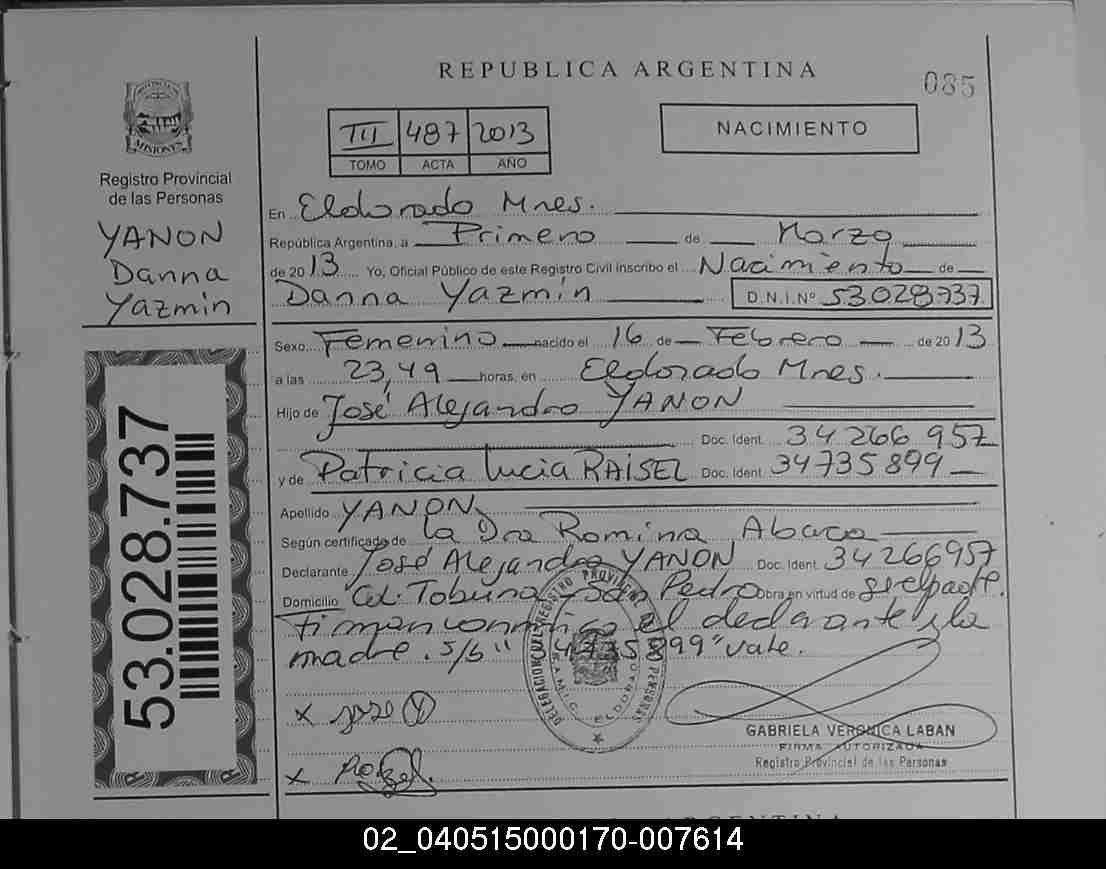 REPUBLICA ARGENTINA
085
MISIONES
Registro Provincial
de las Personas
YANON
Danna
Yazmin
53.028.737
III 487 2013
TOMO ACTA AÑO
NACIMIENTO
En Eldorado Mnes.
República Argentina, a Primero de Marzo
de 2013 Yo, Oficial Público de este Registro Civil inscribo el Nacimiento de
Danna Yazmín D.N.I.Nº 53.028.737
Sexo Femenino nacido el 16 de Febrero de 2013
a las 23,49 horas, en Eldorado Mnes.
Hijo de José Alejandro YANON
Doc. Ident. 34 266 957
y de Patricia Lucia RAISEL Doc. Ident. 34735899
Apellido YANON
Según certificado de la Dra Romina Abaca
Declarante José Alejandro YANON Doc. Ident. 34266957
Domicilio Col. Tobuna - San Pedro Obra en virtud de ser el padre.
Firman conmigo el declarante y la
madre. s/b "34735899" vale.
x Jose Y
x
GABRIELA VERONICA LABAN
FIRMA AUTORIZADA
Registro Provincial de las Personas
ARGENTINA
02_040515000170-007614